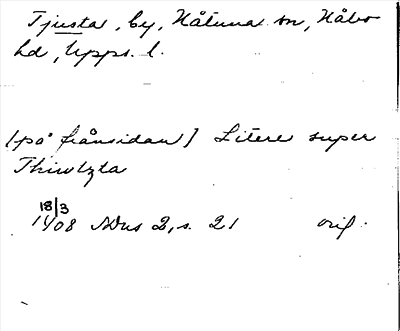 Tjusta, by, Håtuna sn, Håbo
hd, Upps. l.
[på frånsidan] Litere super
Thiwtzta
18/3
1408 SDns 2, s. 21 orig.